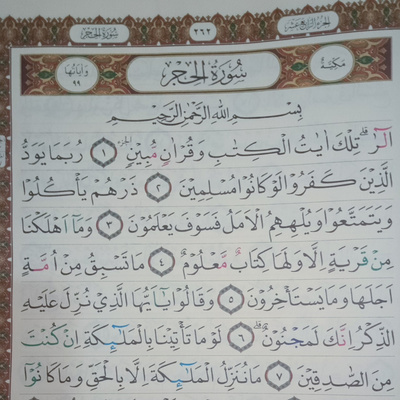 الجزء الرابع عشر
٢٦٢
سورة الحجر
مكية
سُورَةُ الْحِجْرِ
وآياتها ٩٩
بِسْمِ اللهِ الرَّحْمٰنِ الرَّحِيْمِ
الٓرٰ ۗ تِلْكَ اٰيٰتُ الْكِتٰبِ وَقُرْاٰنٍ مُّبِيْنٍ ١ رُبَمَا يَوَدُّ
الَّذِيْنَ كَفَرُوْا لَوْ كَانُوْا مُسْلِمِيْنَ ٢ ذَرْهُمْ يَأْكُلُوْا
وَيَتَمَتَّعُوْا وَيُلْهِهِمُ الْاَمَلُ فَسَوْفَ يَعْلَمُوْنَ ٣ وَمَآ اَهْلَكْنَا
مِنْ قَرْيَةٍ اِلَّا وَلَهَا كِتَابٌ مَّعْلُوْمٌ ٤ مَا تَسْبِقُ مِنْ اُمَّةٍ
اَجَلَهَا وَمَا يَسْتَأْخِرُوْنَ ٥ وَقَالُوْا يٰٓاَيُّهَا الَّذِيْ نُزِّلَ عَلَيْهِ
الذِّكْرُ اِنَّكَ لَمَجْنُوْنٌ ۗ ٦ لَوْ مَا تَأْتِيْنَا بِالْمَلٰۤىِٕكَةِ اِنْ كُنْتَ
مِنَ الصّٰدِقِيْنَ ٧ مَا نُنَزِّلُ الْمَلٰۤىِٕكَةَ اِلَّا بِالْحَقِّ وَمَا كَانُوْٓا